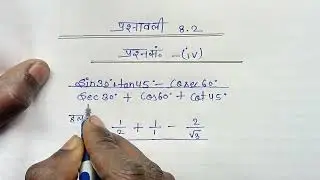 प्रश्नावली 8.2
प्रश्न सं० —(iv)
Sin30°+tan45° − Cosec60°
Sec30° + Cos60° + Cot45°
हल
1/2 + 1/1 − 2/√3